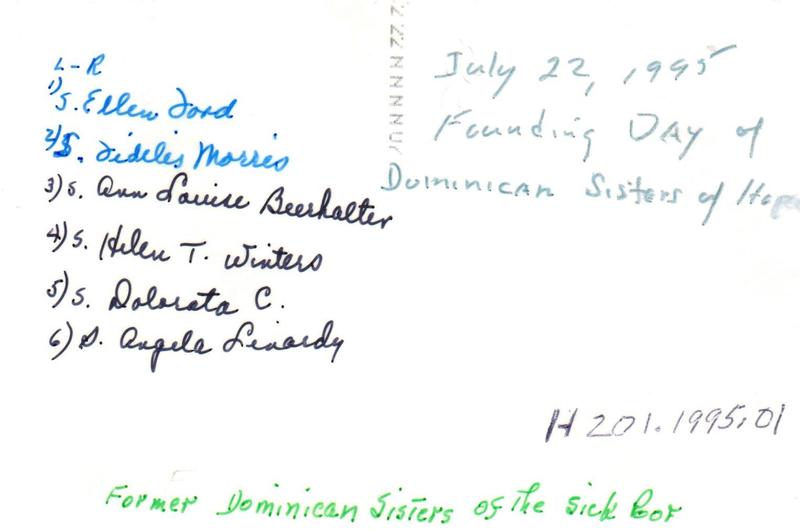 L-R
1) S. Ellen Ford
2) S. Fideles Morris
3) S. Ann Louise Beerhalter
4) S. Helen T. Winters
5) S. Dolorata C.
6) S. Angela Linardy
July 22, 1995
Founding Day of
Dominican Sisters of Hope
H 201.1995.01
Former Dominican Sisters of the Sick Poor